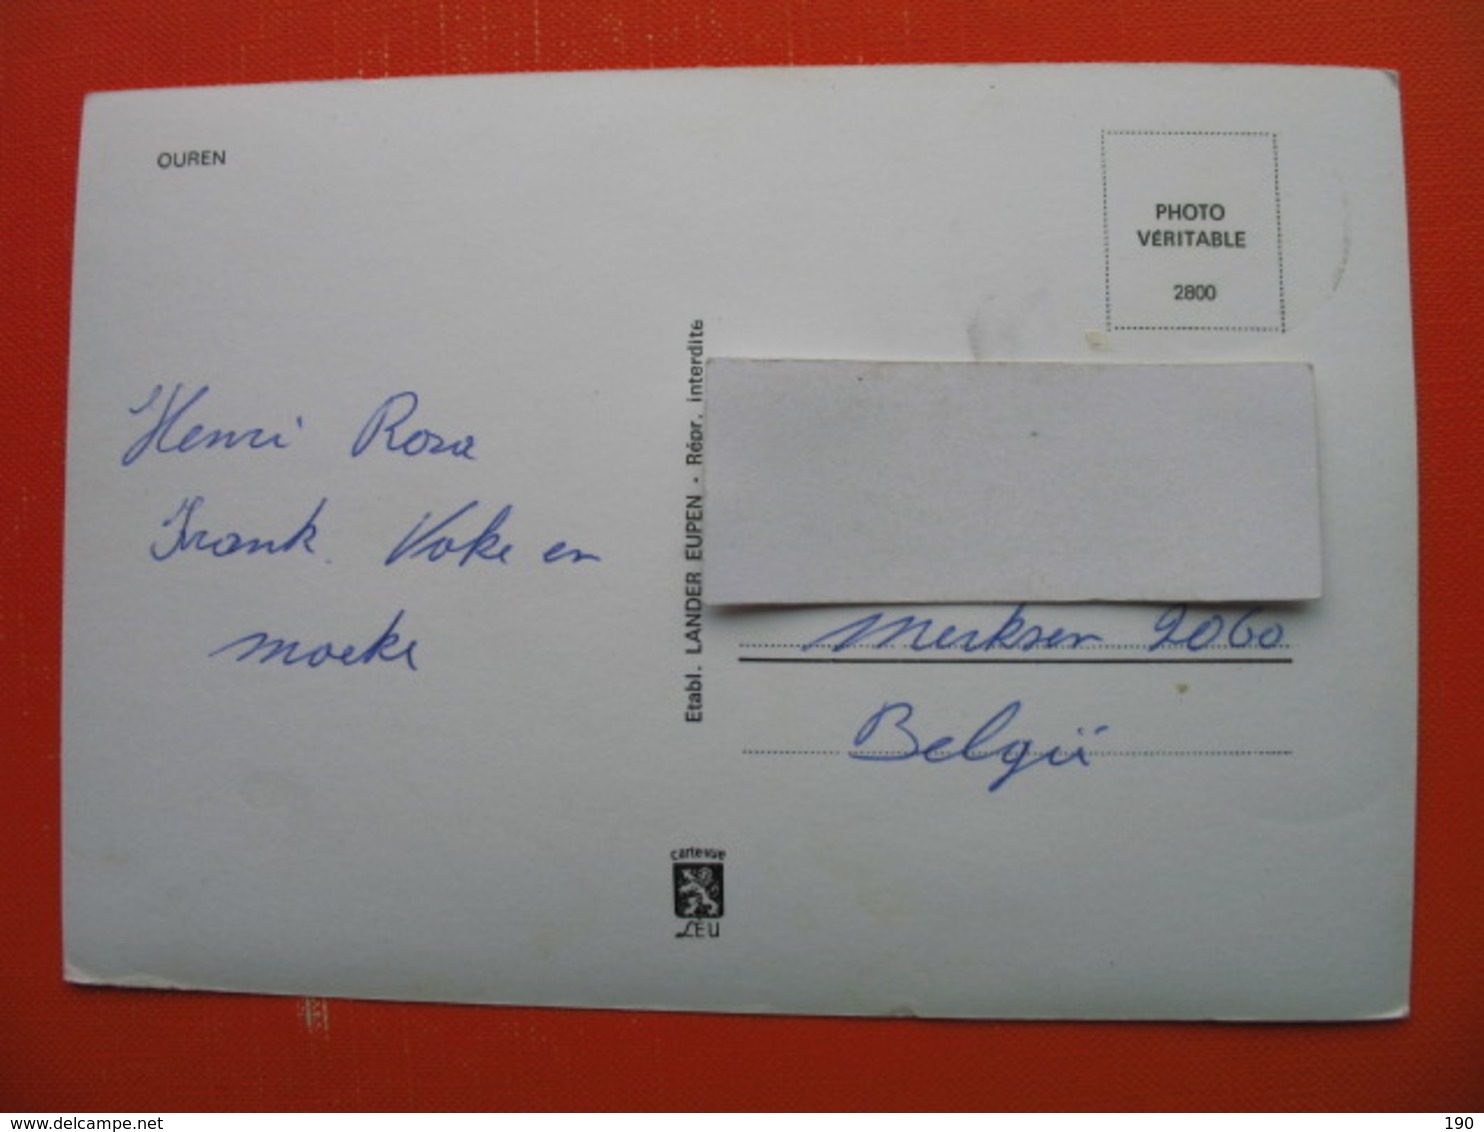 OUREN
PHOTO
VÉRITABLE
2800
Henri Rosa
Frank. Voke en
moeke
Etabl. LANDER EUPEN - Répr. interdite
Merksem 2060
België
cartevue
LEU
www.delcampe.net
190